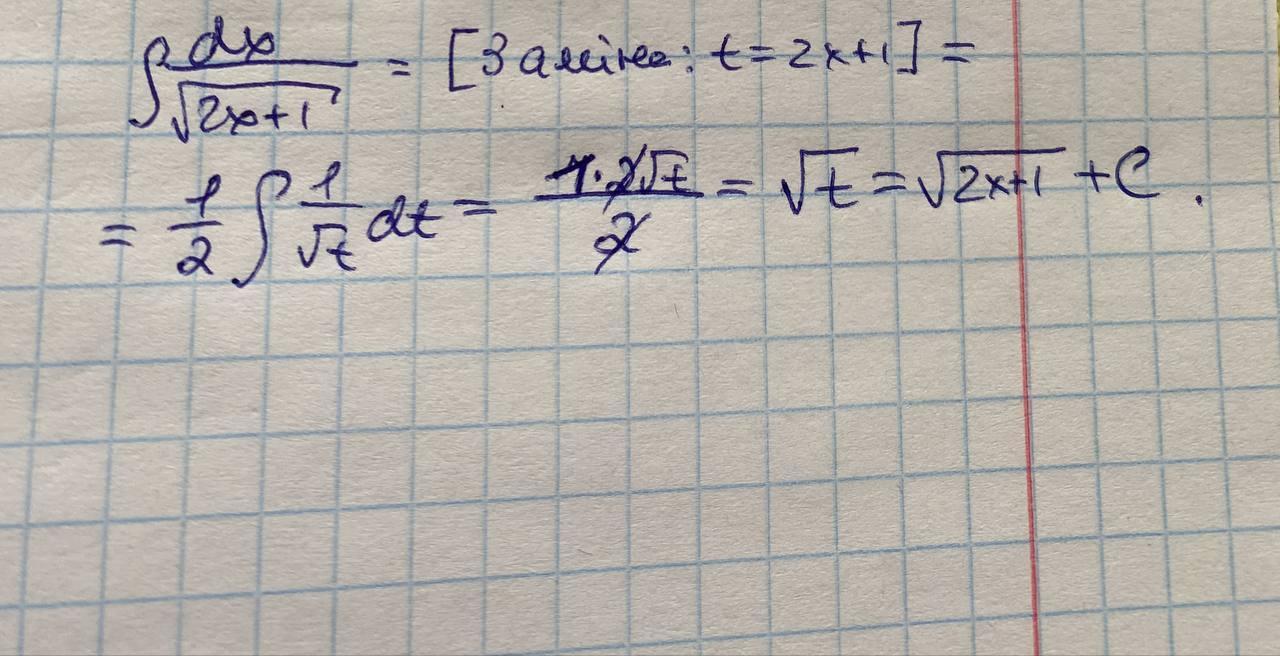 ∫ dx/√(2x+1) = [Заміна: t = 2x+1] =
= 1/2 ∫ 1/√t dt = 1·2√t/2 = √t = √(2x+1) + C.